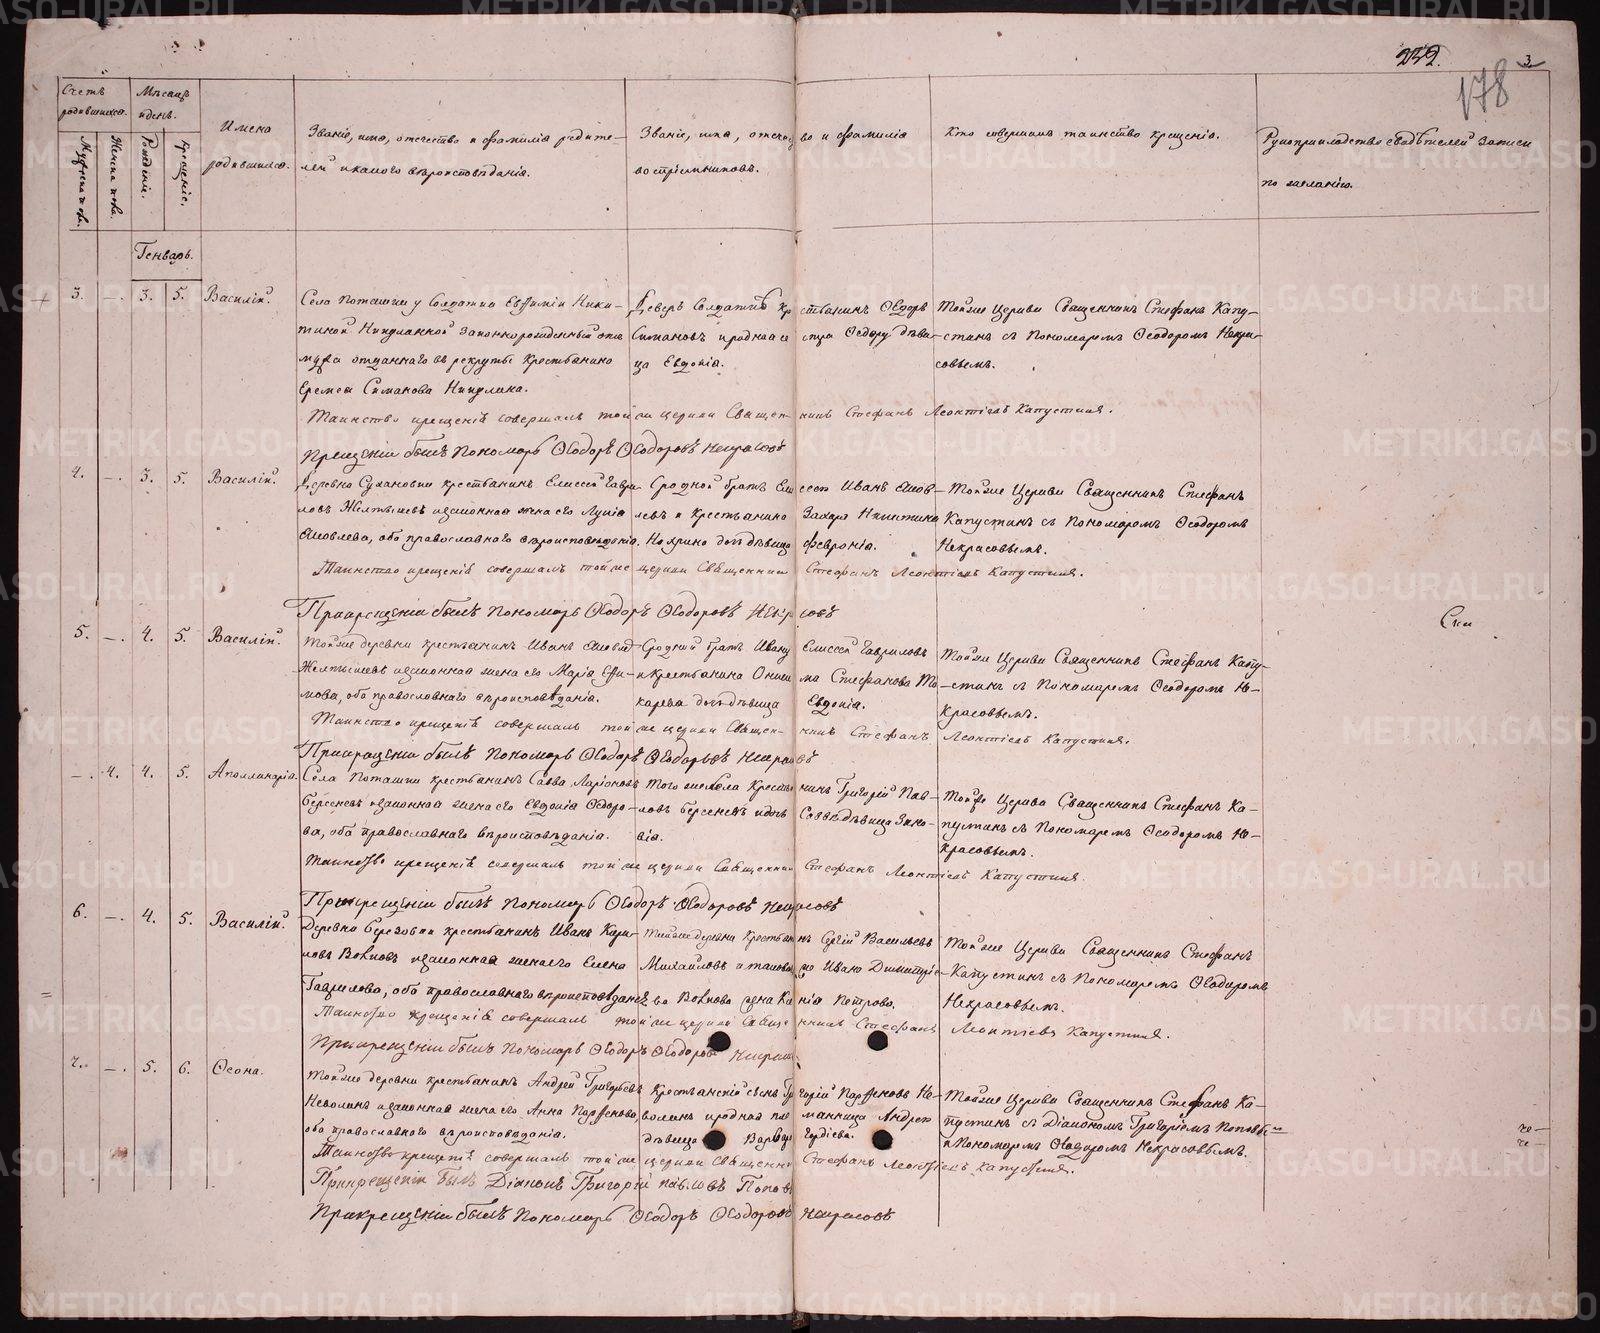 232.
3
178
Счетъ родившихся.
Мѣсяцъ и день.
Имена родившихся.
Званіе, имя, отечество и фамилія родите-
лей и какого вѣроисповѣданія.
Званіе, имя, отечество и фамилія
воспріемниковъ.
Кто совершалъ таинство крещенія.
Рукоприкладство свидѣтелей записи
по желанію.
Мужеска пола.
Женска пола.
Рожденіе.
Крещеніе.
Генварь.
3. —. 3. 5. Василій.
Села Поташки у солдатки Евфиміи Ники-
тиной Никулиной законнорожденный отъ
мужа отданнаго въ рекруты крестьянина
Еремея Симанова Никулина.
Деверь солдатки крестьянинъ Ѳедоръ
Симановъ и родная сестра Ѳедору дѣви-
ца Евдокія.
Той же Церкви Священникъ Стефанъ Капу-
стинъ съ Пономаремъ Ѳеодоромъ Некра-
совымъ.
Таинство крещенія совершалъ той же церкви Священникъ Стефанъ Леонтіевъ Капустинъ.
При крещеніи былъ Пономарь Ѳеодоръ Ѳеодоровъ Некрасовъ
4. —. 3. 5. Василій.
Деревни Сухановки крестьянинъ Елисей Гаври-
ловъ Желтышевъ и законная жена его Лукія
Яковлева, оба православнаго вѣроисповѣданія.
Сродной братъ Елисею Иванъ Яков-
левъ и крестьянина Захара Никитина
дочь дѣвица Февронія.
Той же Церкви Священникъ Стефанъ
Капустинъ съ Пономаремъ Ѳеодоромъ
Некрасовымъ.
Таинство крещенія совершалъ той же церкви Священникъ Стефанъ Леонтіевъ Капустинъ.
При крещеніи былъ Пономарь Ѳеодоръ Ѳеодоровъ Некрасовъ
5. —. 4. 5. Василій.
Той же деревни крестьянинъ Иванъ Яковлевъ
Желтышевъ и законная жена его Марія Ефи-
мова, оба православнаго вѣроисповѣданія.
Сродный братъ Ивану Елисей Гавриловъ
и крестьянина Онисима Стефанова То-
карева дочь дѣвица Евдокія.
Той же Церкви Священникъ Стефанъ Капу-
стинъ съ Пономаремъ Ѳеодоромъ Не-
красовымъ.
Таинство крещенія совершалъ той же церкви Священникъ Стефанъ Леонтіевъ Капустинъ.
При крещеніи былъ Пономарь Ѳеодоръ Ѳеодоровъ Некрасовъ
—. 4. 4. 5. Аполлинарія.
Села Поташки крестьянинъ Савва Ларіоновъ
Берсеневъ и законная жена его Евдокія Ѳедоро-
ва, оба православнаго вѣроисповѣданія.
Того же села крестьянинъ Григорій Пав-
ловъ Берсеневъ и дочь Саввы дѣвица Зино-
вія.
Той же Церкви Священникъ Стефанъ Ка-
пустинъ съ Пономаремъ Ѳеодоромъ Не-
красовымъ.
Таинство крещенія совершалъ той же церкви Священникъ Стефанъ Леонтіевъ Капустинъ.
При крещеніи былъ Пономарь Ѳеодоръ Ѳеодоровъ Некрасовъ
6. —. 4. 5. Василій.
Деревни Березовки крестьянинъ Иванъ Кири-
ловъ Вовковъ и законная жена его Елена
Гаврилова, оба православнаго вѣроисповѣданія
Той же деревни крестьянинъ Сергій Васильевъ
Михайловъ и Ивана Димитріе-
ва Вовкова жена Ксенія Петрова.
Той же Церкви Священникъ Стефанъ
Капустинъ съ Пономаремъ Ѳеодоромъ
Некрасовымъ.
Таинство крещенія совершалъ той же церкви Священникъ Стефанъ Леонтіевъ Капустинъ.
При крещеніи былъ Пономарь Ѳеодоръ Ѳеодоровъ Некрасовъ
7. —. 5. 6. Ѳеона.
Той же деревни крестьянинъ Андрей Григорьевъ
Неволинъ и законная жена его Анна Парфенова,
оба православнаго вѣроисповѣданія.
Крестьянскій сынъ Григорій Парфеновъ Не-
волинъ и родная племянница Андрею
дѣвица Варвара Гордіева.
Той же Церкви Священникъ Стефанъ Ка-
пустинъ съ Діакономъ Григоріемъ Поповымъ
и Пономаремъ Ѳеодоромъ Некрасовымъ.
Таинство крещенія совершалъ той же церкви Священникъ Стефанъ Леонтіевъ Капустинъ.
При крещеніи былъ Діаконъ Григорій Павловъ Поповъ
При крещеніи былъ Пономарь Ѳеодоръ Ѳеодоровъ Некрасовъ
METRIKI.GASO-URAL.RU